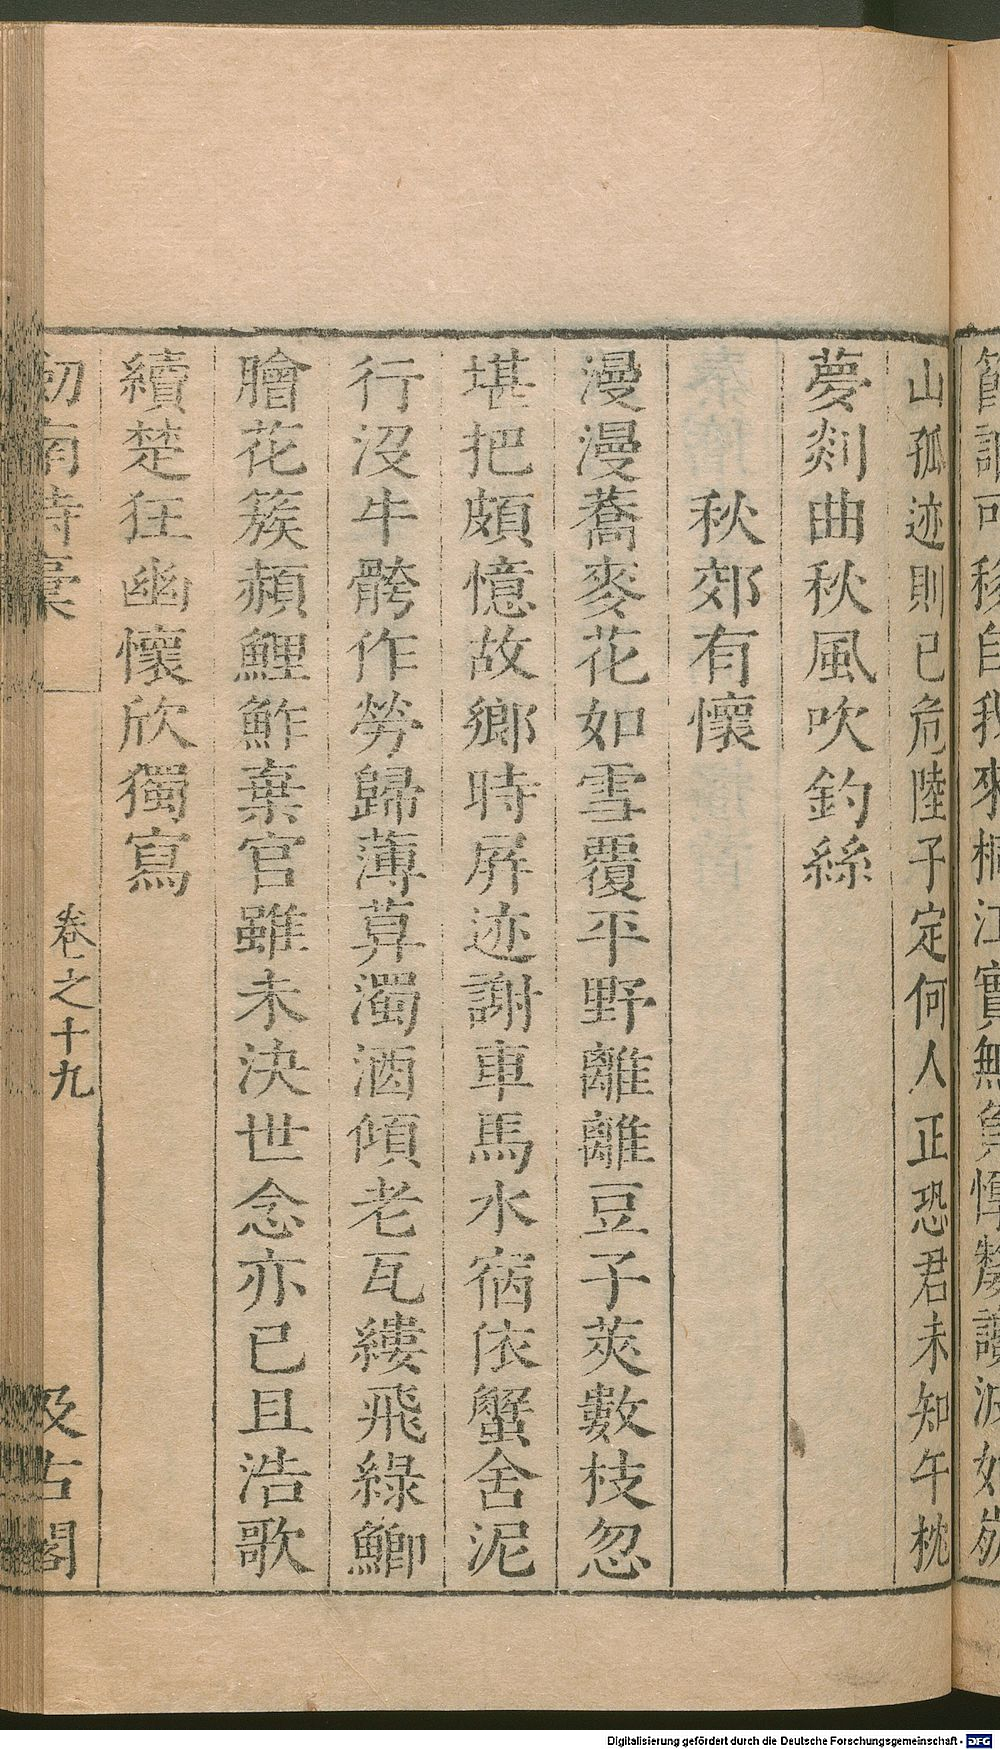 可移自我來桐江實無負惸嫠
山孤迹則已危陸子定何人正恐君未知午枕
夢剡曲秋風吹釣絲
秋郊有懷
漫漫蕎麥花如雪覆平野離離豆子莢數枝忽
堪把頗憶故鄉時屏迹謝車馬水宿依蟹舍泥
行没牛骻作勞歸薄莫濁酒傾老瓦縷飛綠鯽
膾花簇赬鯉鮓棄官雖未決世念亦已且浩歌
續楚狂幽懷欣獨寫
劒南詩稾
卷之十九
汲古閣
Digitalisierung gefördert durch die Deutsche Forschungsgemeinschaft - DFG